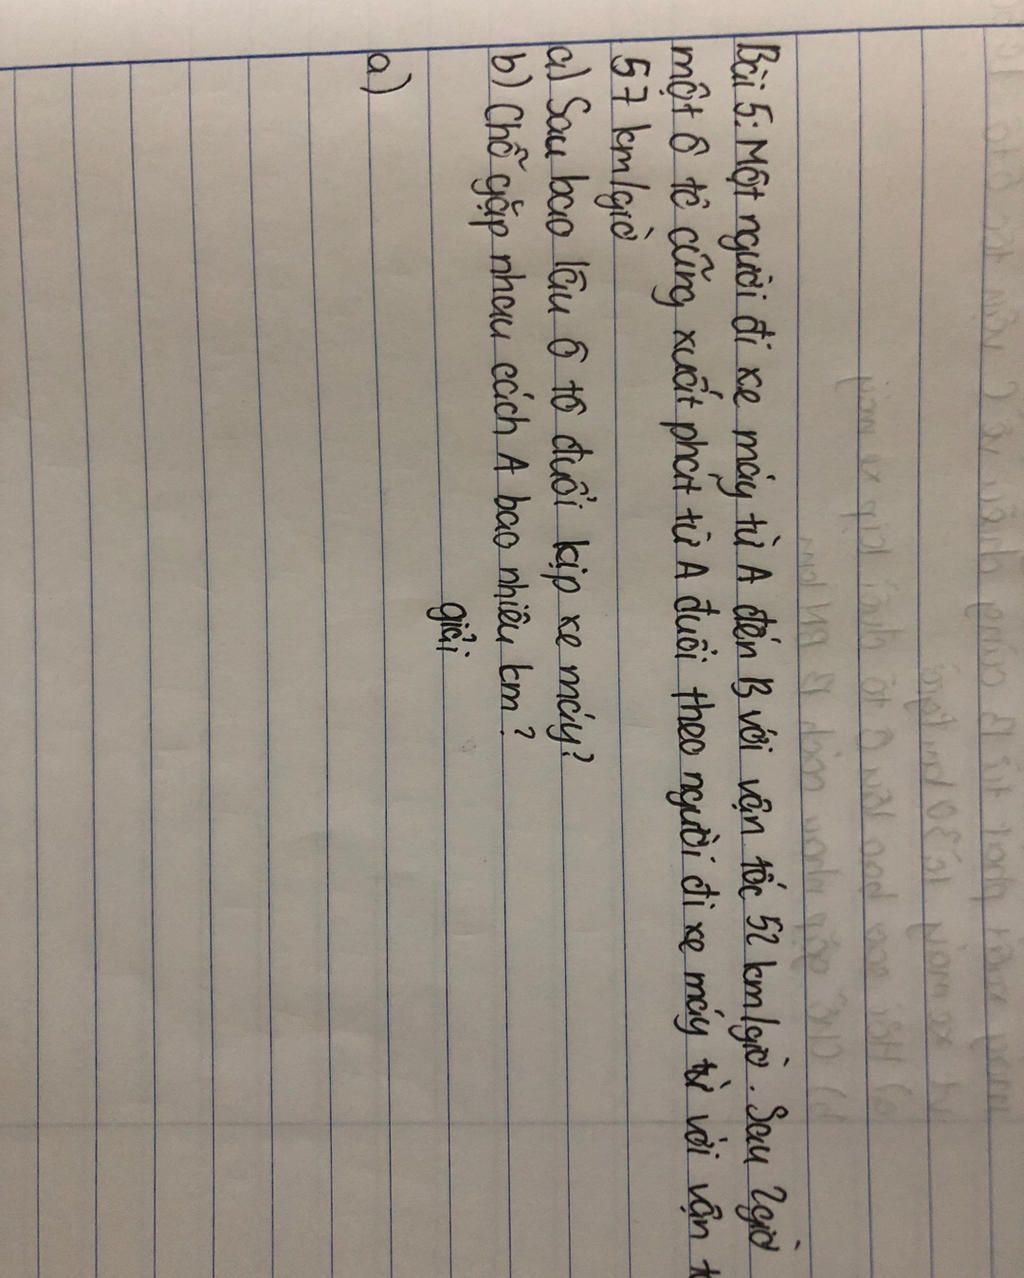 Bài 5: Một người đi xe máy từ A đến B với vận tốc 52 km/giờ. Sau 2 giờ
một ô tô cũng xuất phát từ A đuổi theo người đi xe máy từ với vận
57 km/giờ
a) Sau bao lâu ô tô đuổi kịp xe máy?
b) Chỗ gặp nhau cách A bao nhiêu km?
giải
a)